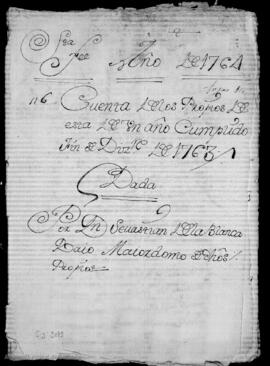 Año de 1764
n 6 Cuenta de los Propios de
esta de un año Cumplido
fin de Diz.re de 1763
Dada
Por Dn Sevastian de la Blanca
Maiordomo de dhos
Propios